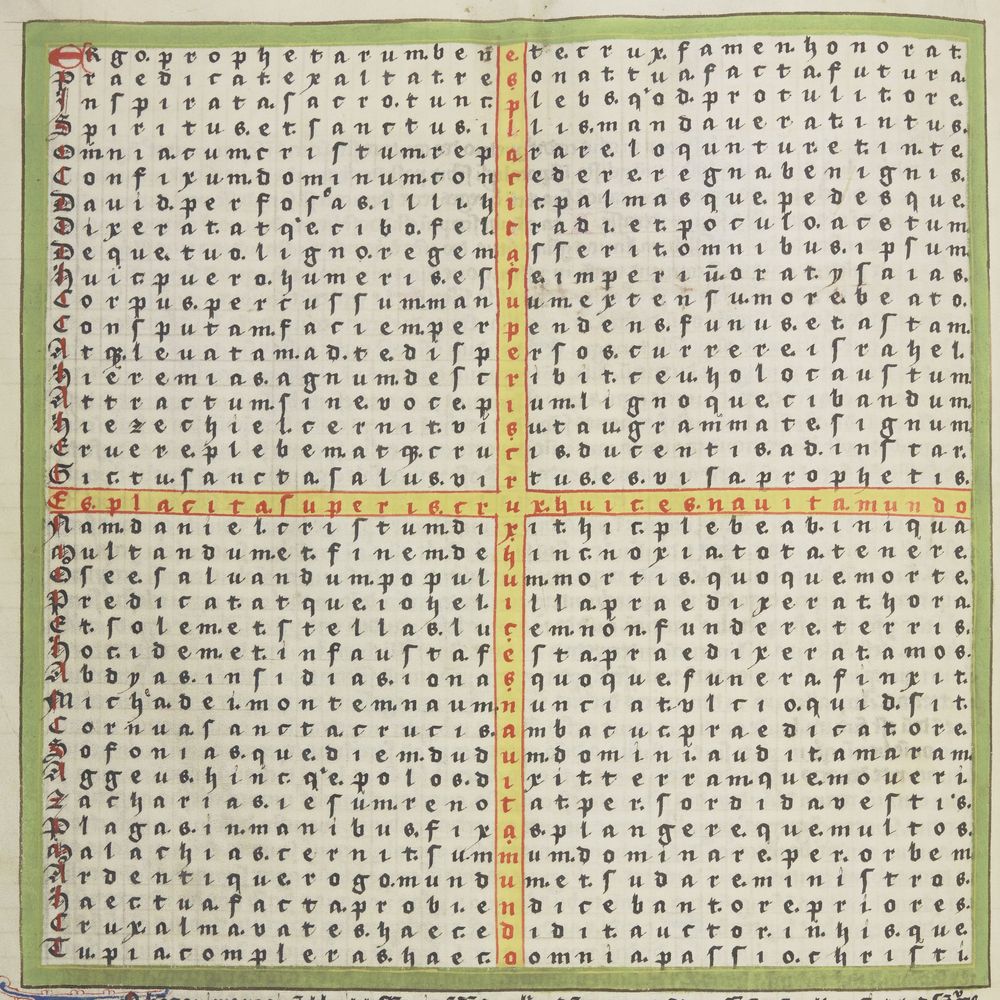 ERgo prophetarum bene te crux famen honorat
Praedicat exaltat resonat tua facta futura
Inspirata sacro tunc plebs qod protulit ore
Spiritus et sanctus illis mandauerat intus
Omnia cum cristum reparare loquntur et in te
Confixum dominum concedere regna benignis
Dauid perfosas illi hic palmasque pedesque
Dixerat atqe cibo fel tradi et poculo acetum
Deque tuo ligno regem asserit omnibus ipsum
Huic puero humeris esse imperiū orat ysaias
Corpus percussum manuum extensum ore beato
Consputam faciem perpendens funus et astam
Atqꝫ leuatam ad te dispersos currere israhel
Hieremias agnum describit ceu holocaustum
Attractum sine voce pium lignoque cibandum
Hiezechiel cernit visu tau grammate signum
Eruere plebem atqꝫ crucis ducentis ad instar
Sic tu sancta salus virtus es visa prophetis
Es placita superis crux huic es nauita mundo
Nam daniel cristum dixit hic plebe ab iniqua
Multandum et finem dehinc noxia tota tenere
Osee saluandum populum mortis quoque morte
Predicat atque iohel illa praedixerat hora
Et solem et stellas lucem non fundere terris
Hoc idem et infausta festa praedixerat amos
Abdyas insidias ionas quoque funera finxit
Micha dei montem nauum nunciat vlcio quid sit
Cornua sancta crucis ambacuc praedicat ore
Sofonias que diem dudum domini audit amaram
Aggeus hinc qe polos dixit terramque moueri
Zacharias iesum renotat per sordida vestis
Plagas in manibus fixas plangere que multos
Malachias cernit summum dominare per orbem
Ardentique rogo mundum et sudare ministros
Haec tua facta probi endicebant ore priores
Crux alma vates haec edidit auctor in hisque
Tu pia compleras haec omnia passio christi